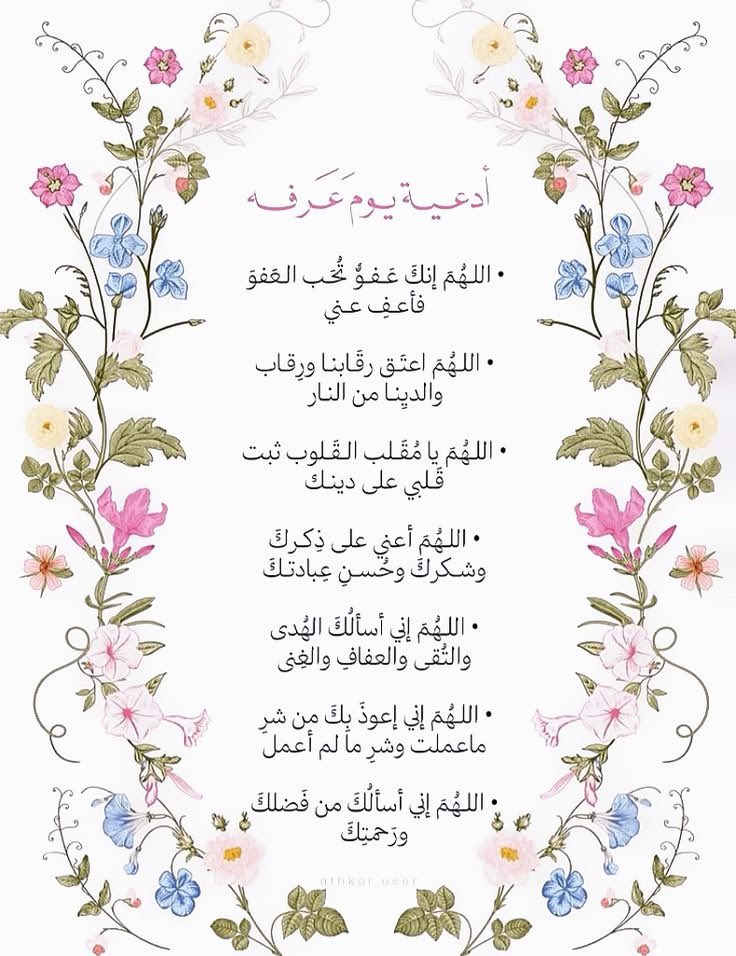 أدعية يومَ عَرفه
• اللهُمَ إنكَ عَفوٌ تُحَب العَفوَ
فأعفِ عني
• اللهُمَ اعتَق رقَابنا ورِقاب
والديِنا من النار
• اللهُمَ يا مُقَلب القَلوب ثبت
قَلبي على دينك
• اللهُمَ أعني على ذِكركَ
وشكركَ وحُسنِ عِبادتكَ
• اللهُمَ إني أسألُكَ الهُدى
والتُقى والعفافِ والغِنى
• اللهُمَ إني إعوذَ بِكَ من شرِ
ماعملت وشرِ ما لم أعمل
• اللهُمَ إني أسألُكَ من فَضلكَ
ورَحمَتِكَ
athkar.user